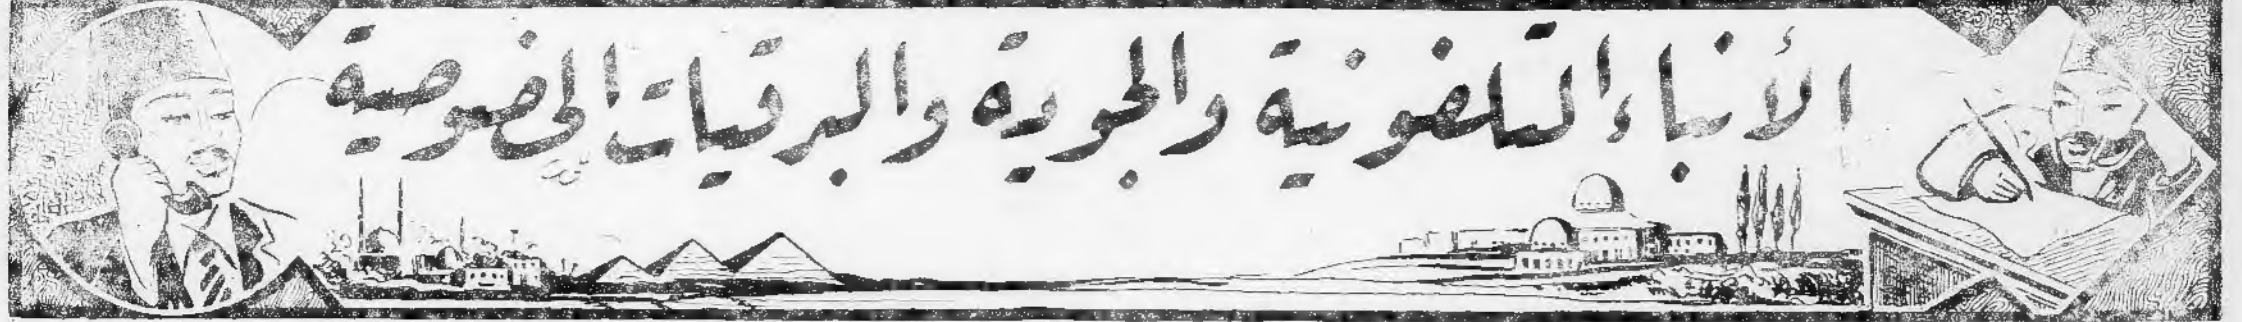 الأنباء التلفونية والجوية والبرقيات الخصوصية